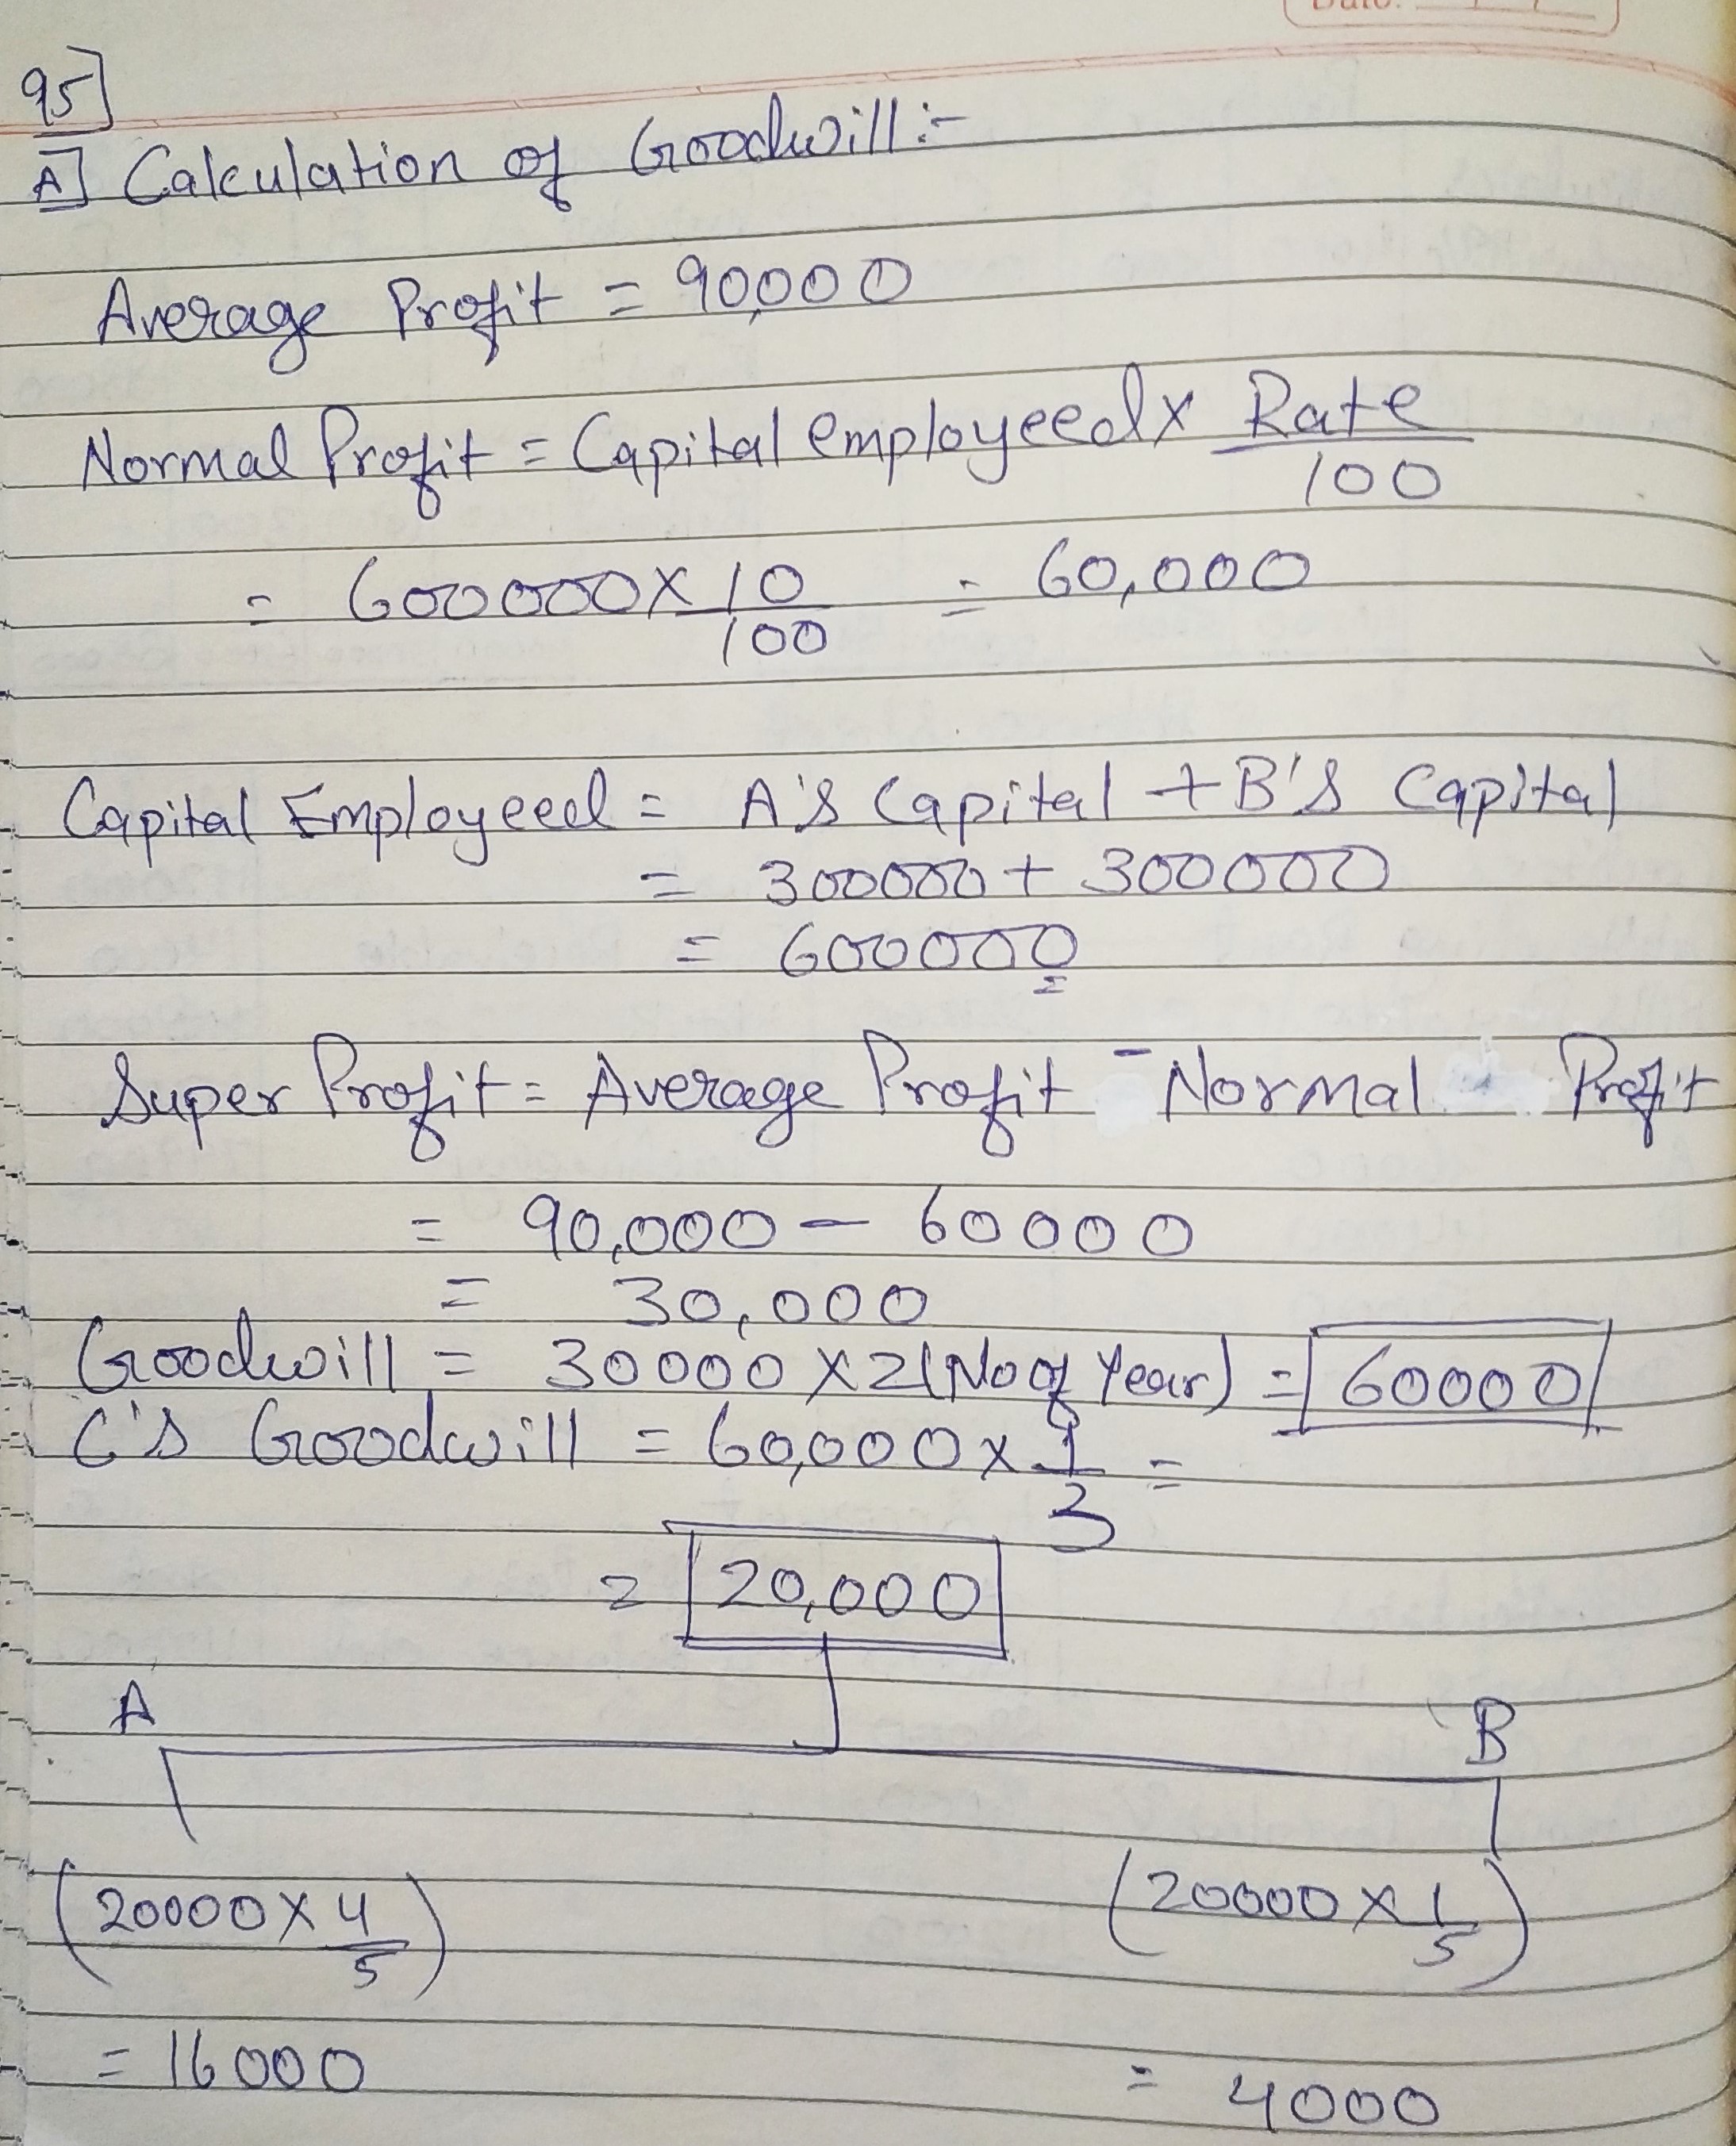 95]
A] Calculation of Goodwill:-
Average Profit = 90,000
Normal Profit = Capital employeed x Rate/100
= 600000 x 10/100 = 60,000
Capital Employeed = A's Capital + B's Capital
= 300000 + 300000
= 600000
Super Profit = Average Profit - Normal Profit
= 90,000 - 60000
= 30,000
Goodwill = 30000 x 2 (No of Year) = 60000
C's Goodwill = 60,000 x 1/3 =
= 20,000
A B
(20000 x 4/5) (20000 x 1/5)
= 16000 = 4000